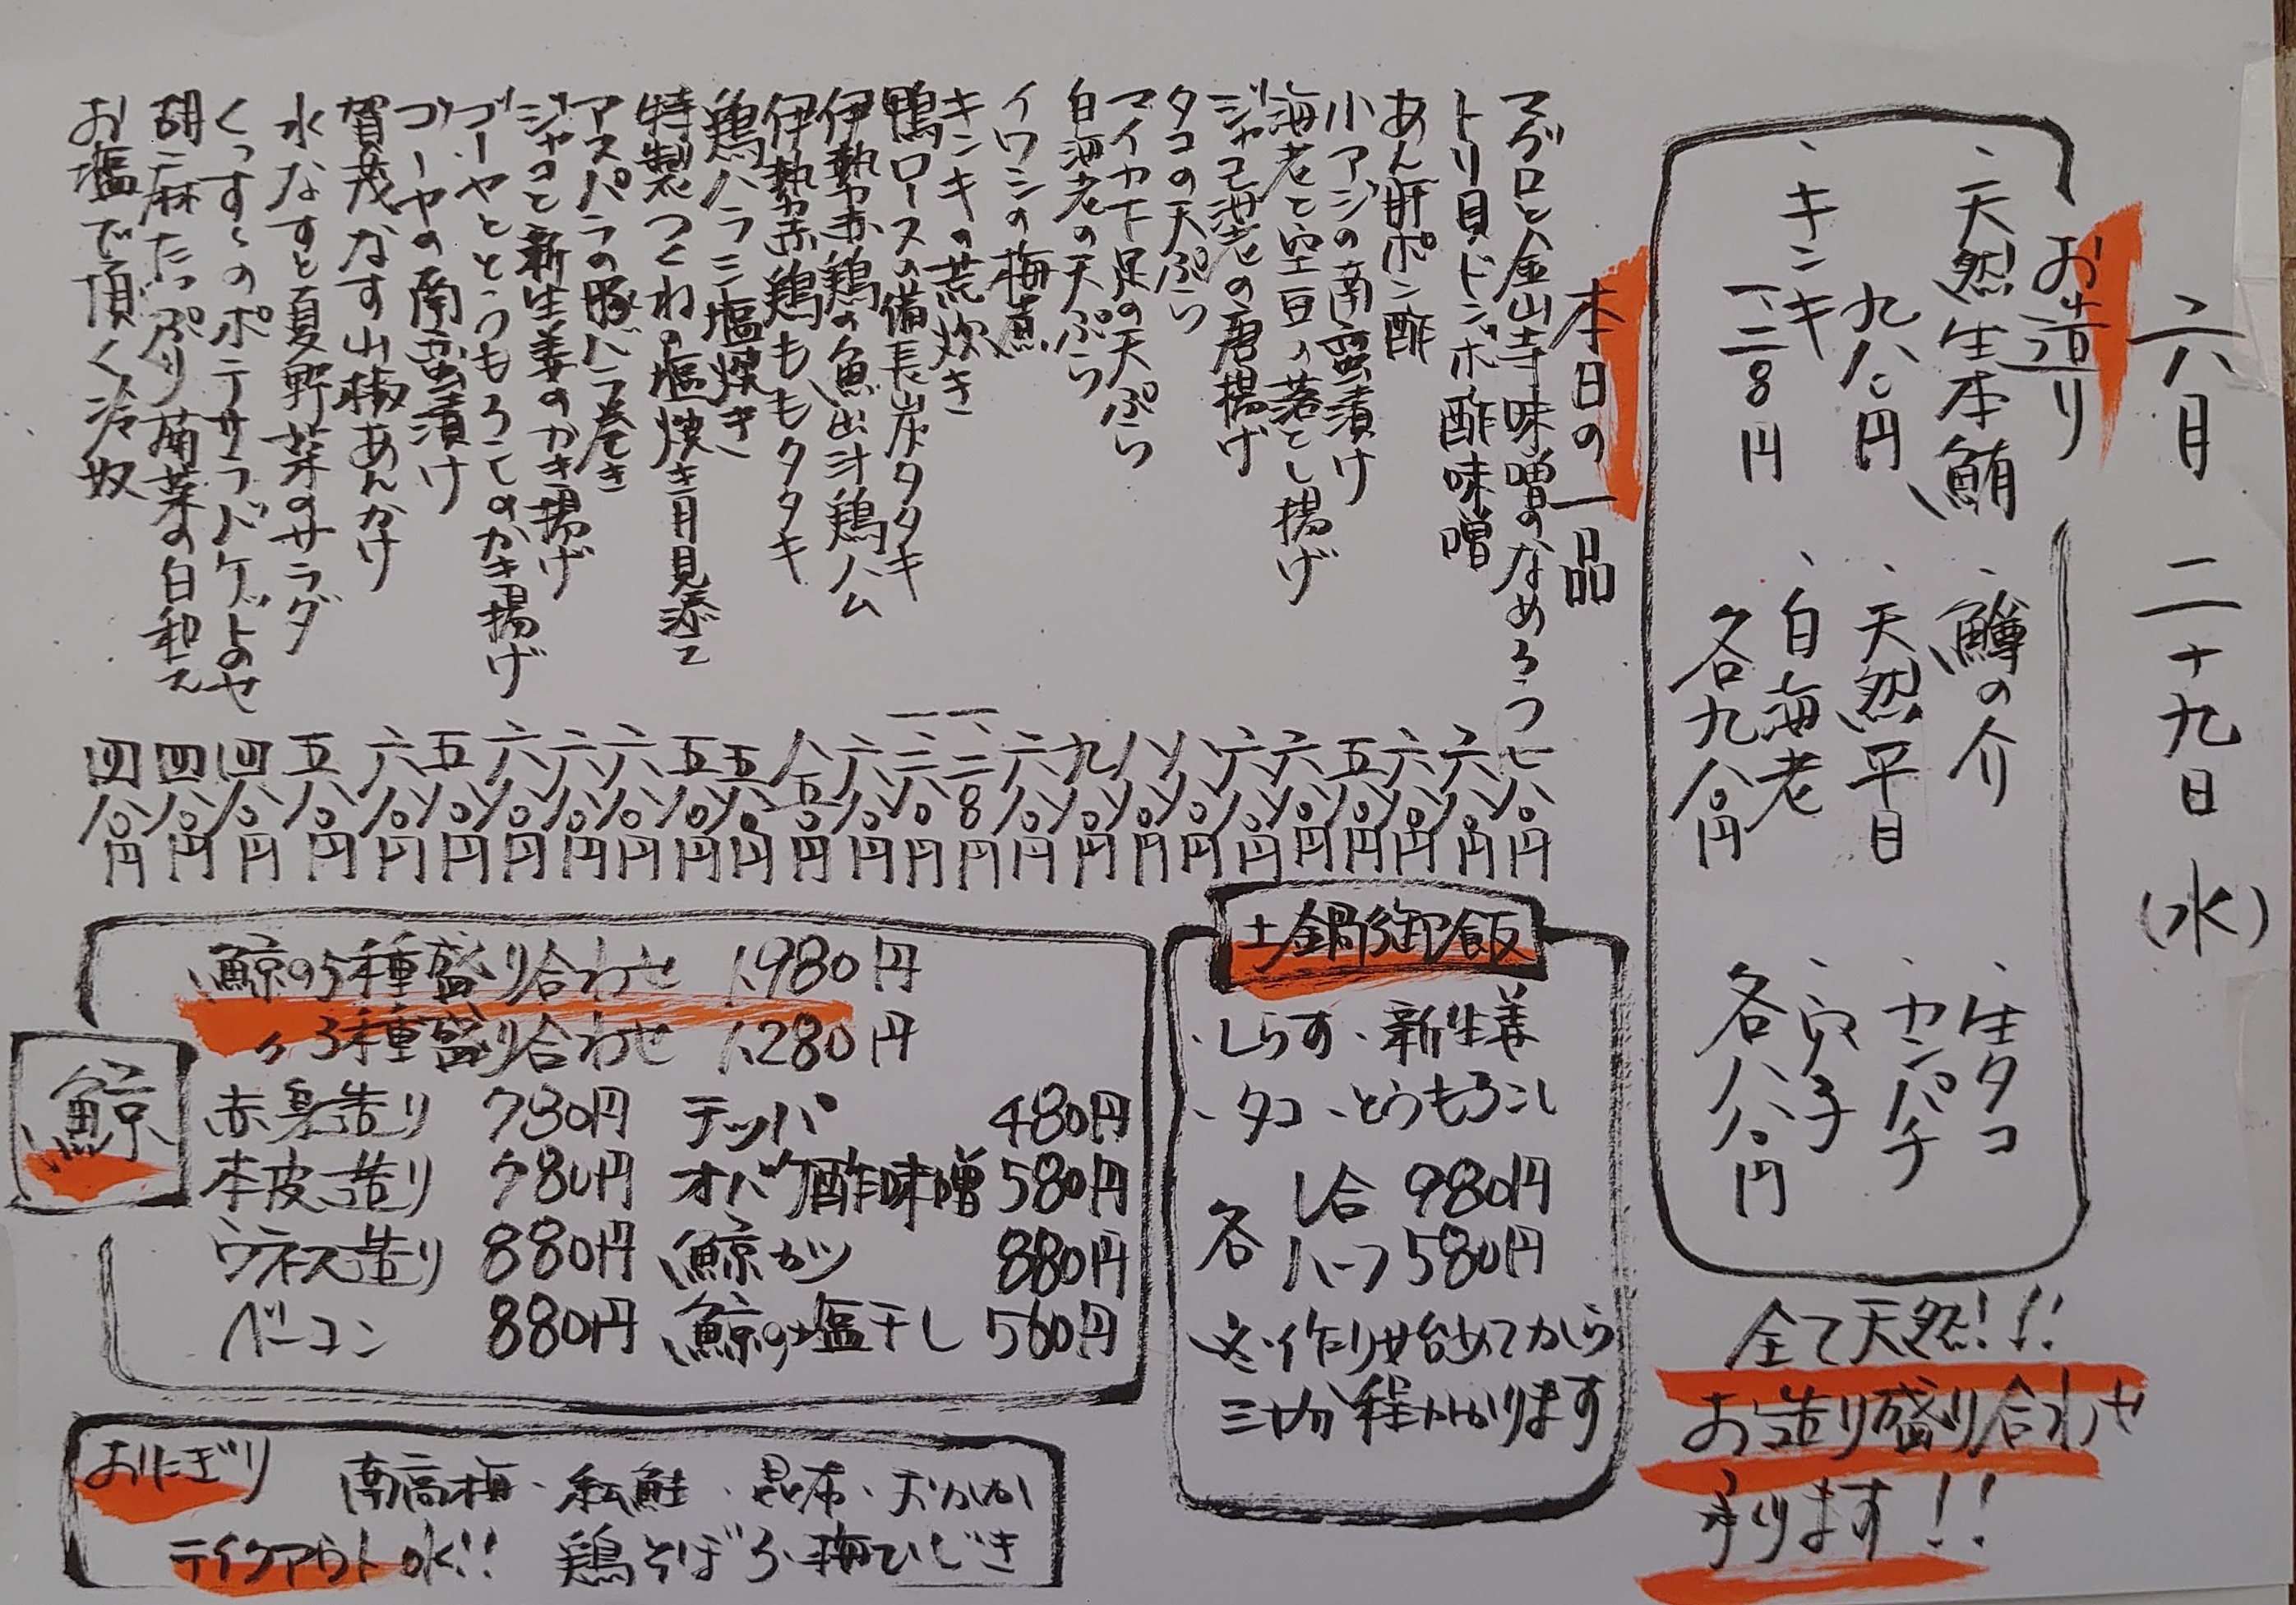 六月二十九日(水)
お造り
、天然生本鮪
九八〇円
、キンキ
一、二八〇円
、鱒の介
、天然平目
、白海老
各九八〇円
、生タコ
、カンパチ
、穴子
各八八〇円
全て天然!!!
お造り盛り合わせ
承ります!!
本日の一品
マグロと金山寺味噌のなめろう 七八〇円
トリ貝ドンボ酢味噌 六八〇円
あん肝ポン酢 六八〇円
小アジの南蛮漬け 五八〇円
海老と空豆の落とし揚げ 六八〇円
ジャコ海老の唐揚げ 六八〇円
タコの天ぷら 八八〇円
マイカ下足の天ぷら 八八〇円
白海老の天ぷら 九八〇円
イワシの梅煮 六八〇円
キンキの荒炊き 一、二八〇円
鴨ロースの備長炭タタキ 一、三八〇円
伊勢赤鶏の魚出汁鶏ハム 六八〇円
伊勢赤鶏ももタタキ 八八〇円
鶏ハラミ塩焼き 五八〇円
特製つくねの塩焼き月見添えて 五八〇円
アスパラの豚バラ巻き 六八〇円
ジャコと新生姜のかき揚げ 六八〇円
ゴーヤととうもろこしのかき揚げ 六八〇円
ゴーヤの南蛮漬け 五八〇円
賀茂なす山椒あんかけ 六八〇円
水なすと夏野菜のサラダ 五八〇円
くっすぅのポテサラバケットのせ 四八〇円
胡麻たっぷり菊菜の白和え 四八〇円
お塩で頂く冷奴 四八〇円
土鍋御飯
・しらす、新生姜
、タコ、とうもろこし
各 1合 980円
ハーフ 580円
※作り始めてから
三十分程かかります
鯨
鯨の5種盛り合わせ 1,980円
〃 3種盛り合わせ 1,280円
赤身造り 780円 テッパ 480円
本皮造り 780円 オバケ酢味噌 580円
ウネス造り 880円 鯨カツ 880円
ベーコン 880円 鯨の塩干し 560円
おにぎり 南高梅・紅鮭・昆布・おかか
テイクアウトOK!! 鶏そぼろ・梅ひじき